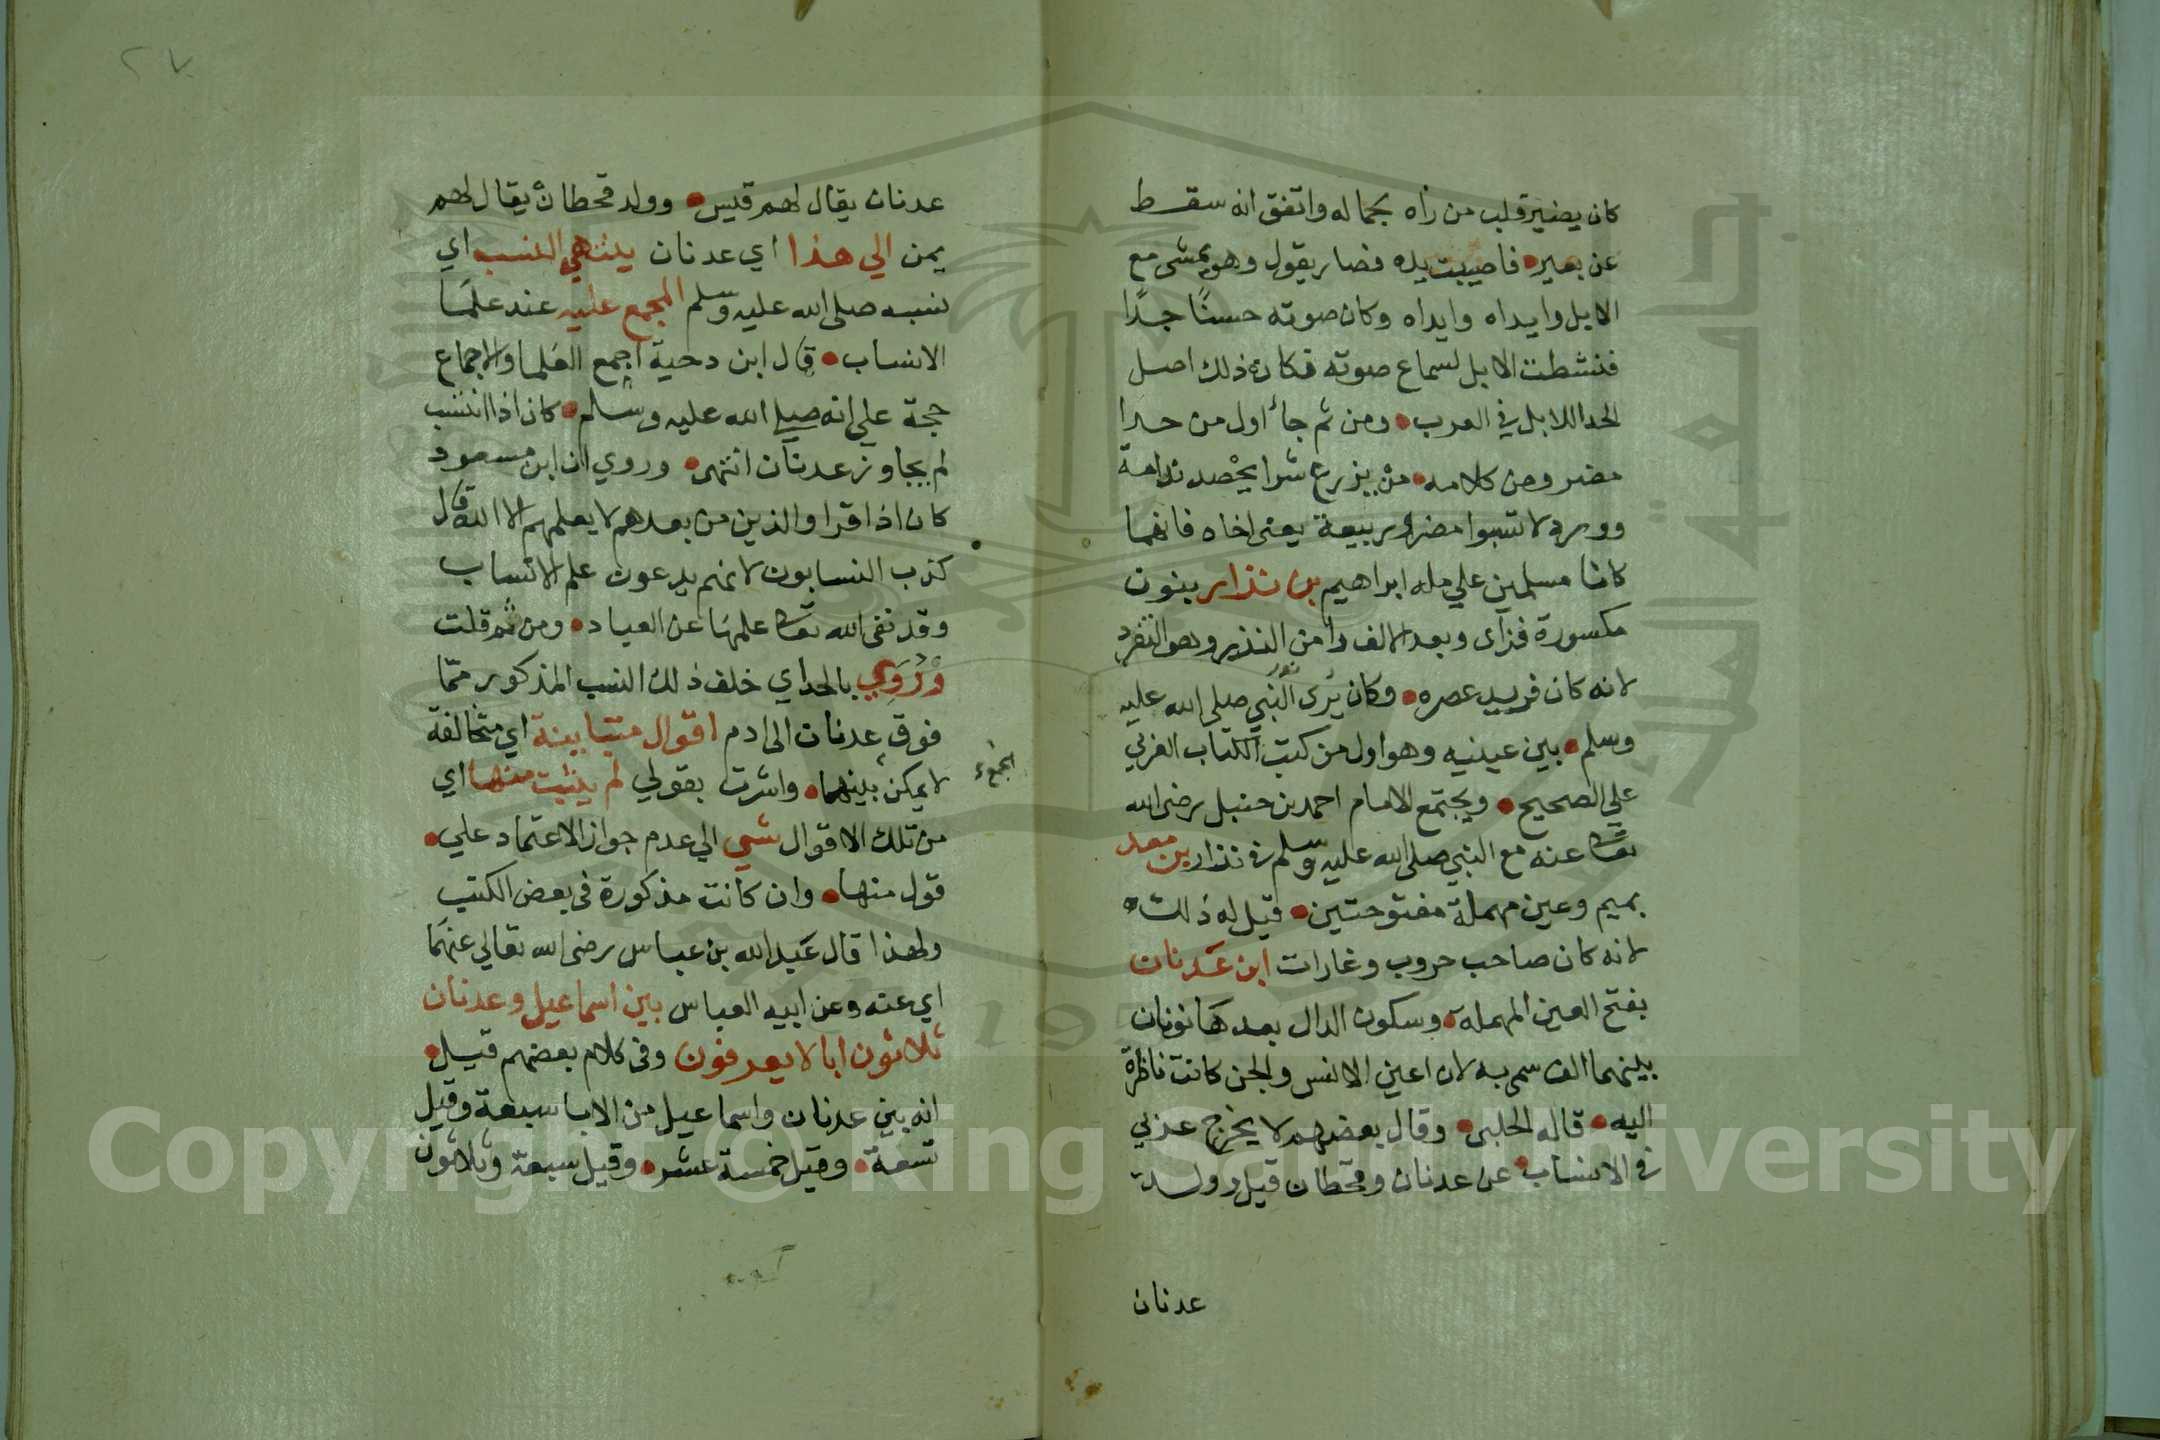 كان يضير قلب من راه بجماله واتفق انه سقط
عن بعير فاصيبت يده فصار يقول وهو يمشى مع
الابل وايداه وايداه وكان صوته حسنًا جدًا
فنشطت الابل لسماع صوته فكان ذلك اصل
الحدا للابل في العرب ومن ثم جا اول من حدا
مضر ومن كلامه من يزرع شرا يحصد ندامة
وورد لا تسبوا مضر وربيعة يعنى اخاه فانهما
كانا مسلمين علي مله ابراهيم بن نذار بنون
مكسورة فزاى وبعد الالف را من النذر وهو التفرد
لانه كان فريد عصره وكان يرى نور النبي صلى الله عليه
وسلم بين عينيه وهو اول من كتب الكتاب العربي
علي الصحيح ويجتمع الامام احمد بن حنبل رضى الله
تعالى عنه مع النبي صلى الله عليه وسلم في نذار بن معد
بميم وعين مهملة مفتوحتين قيل له ذلك
لانه كان صاحب حروب وغارات ابن عدنان
بفتح العين المهملة وسكون الدال بعدها نونان
بينهما الف سمى به لان اعين الانس والجن كانت ناظرة
اليه قاله الحلبى وقال بعضهم لا يخرج عزبي
في الانساب عن عدنان وقحطان قيل وولد
عدنان
٢٧
عدنان يقال لهم قيس وولد قحطان يقال لهم
يمن الي هذا اي عدنان ينتهي النسب اي
نسبه صلى الله عليه وسلم المجمع عليه عند علما
الانساب قال ابن دحية اجمع العلما والاجماع
حجة علي انه صلى الله عليه وسلم كان اذا انتسب
لم يجاوز عدنان انتهى وروي ان ابن مسعود
كان اذا قرا والذين من بعدهم لا يعلمهم الا الله قال
كذب النسابون لانهم يدعون علم الانساب
وقد نفى الله تعالى علمها عن العباد ومن ثم قلت
وروي بالحداي خلف ذلك النسب المذكور مما
فوق عدنان الى ادم اقوال متباينة اي متخالفة
لا يمكن بينهما واشرت بقولي لم يثبت منها اي
الجمع
من تلك الاقوال شي الي عدم جواز الاعتماد علي
قول منها وان كانت مذكورة فى بعض الكتب
ولهذا قال عبد الله بن عباس رضى الله تعالي عنهما
اي عنه وعن ابيه العباس بين اسماعيل وعدنان
ثلاثون ابا لا يعرفون وفى كلام بعضهم قيل
انه بين عدنان واسماعيل من الابا سبعة وقيل
تسعة وقيل خمسة عشر وقيل سبعة وثلاثون
Copyright © King Saud University